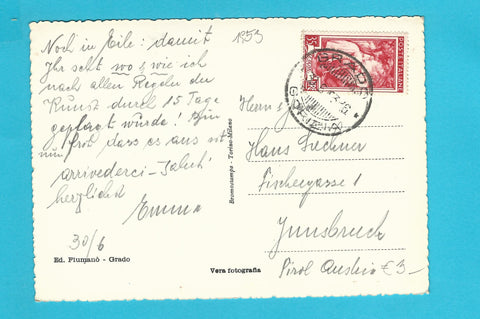 1953
Noch in Eile: damit
Ihr seht wo & wie ich
nach allen Regeln der
Kunst durch 15 Tage
geplagt würde! Bin
froh dass es aus ist
nun, arrivederci
herzlichst
Emma
30/6
Ed. Fiumanò - Grado
Vera fotografia
Bromostampa - Torino-Milano
POSTE ITALIANE
GRADO
GORIZIA
Herrn
Hans
Fischergasse 1
Innsbruck
Tirol Austria €3-